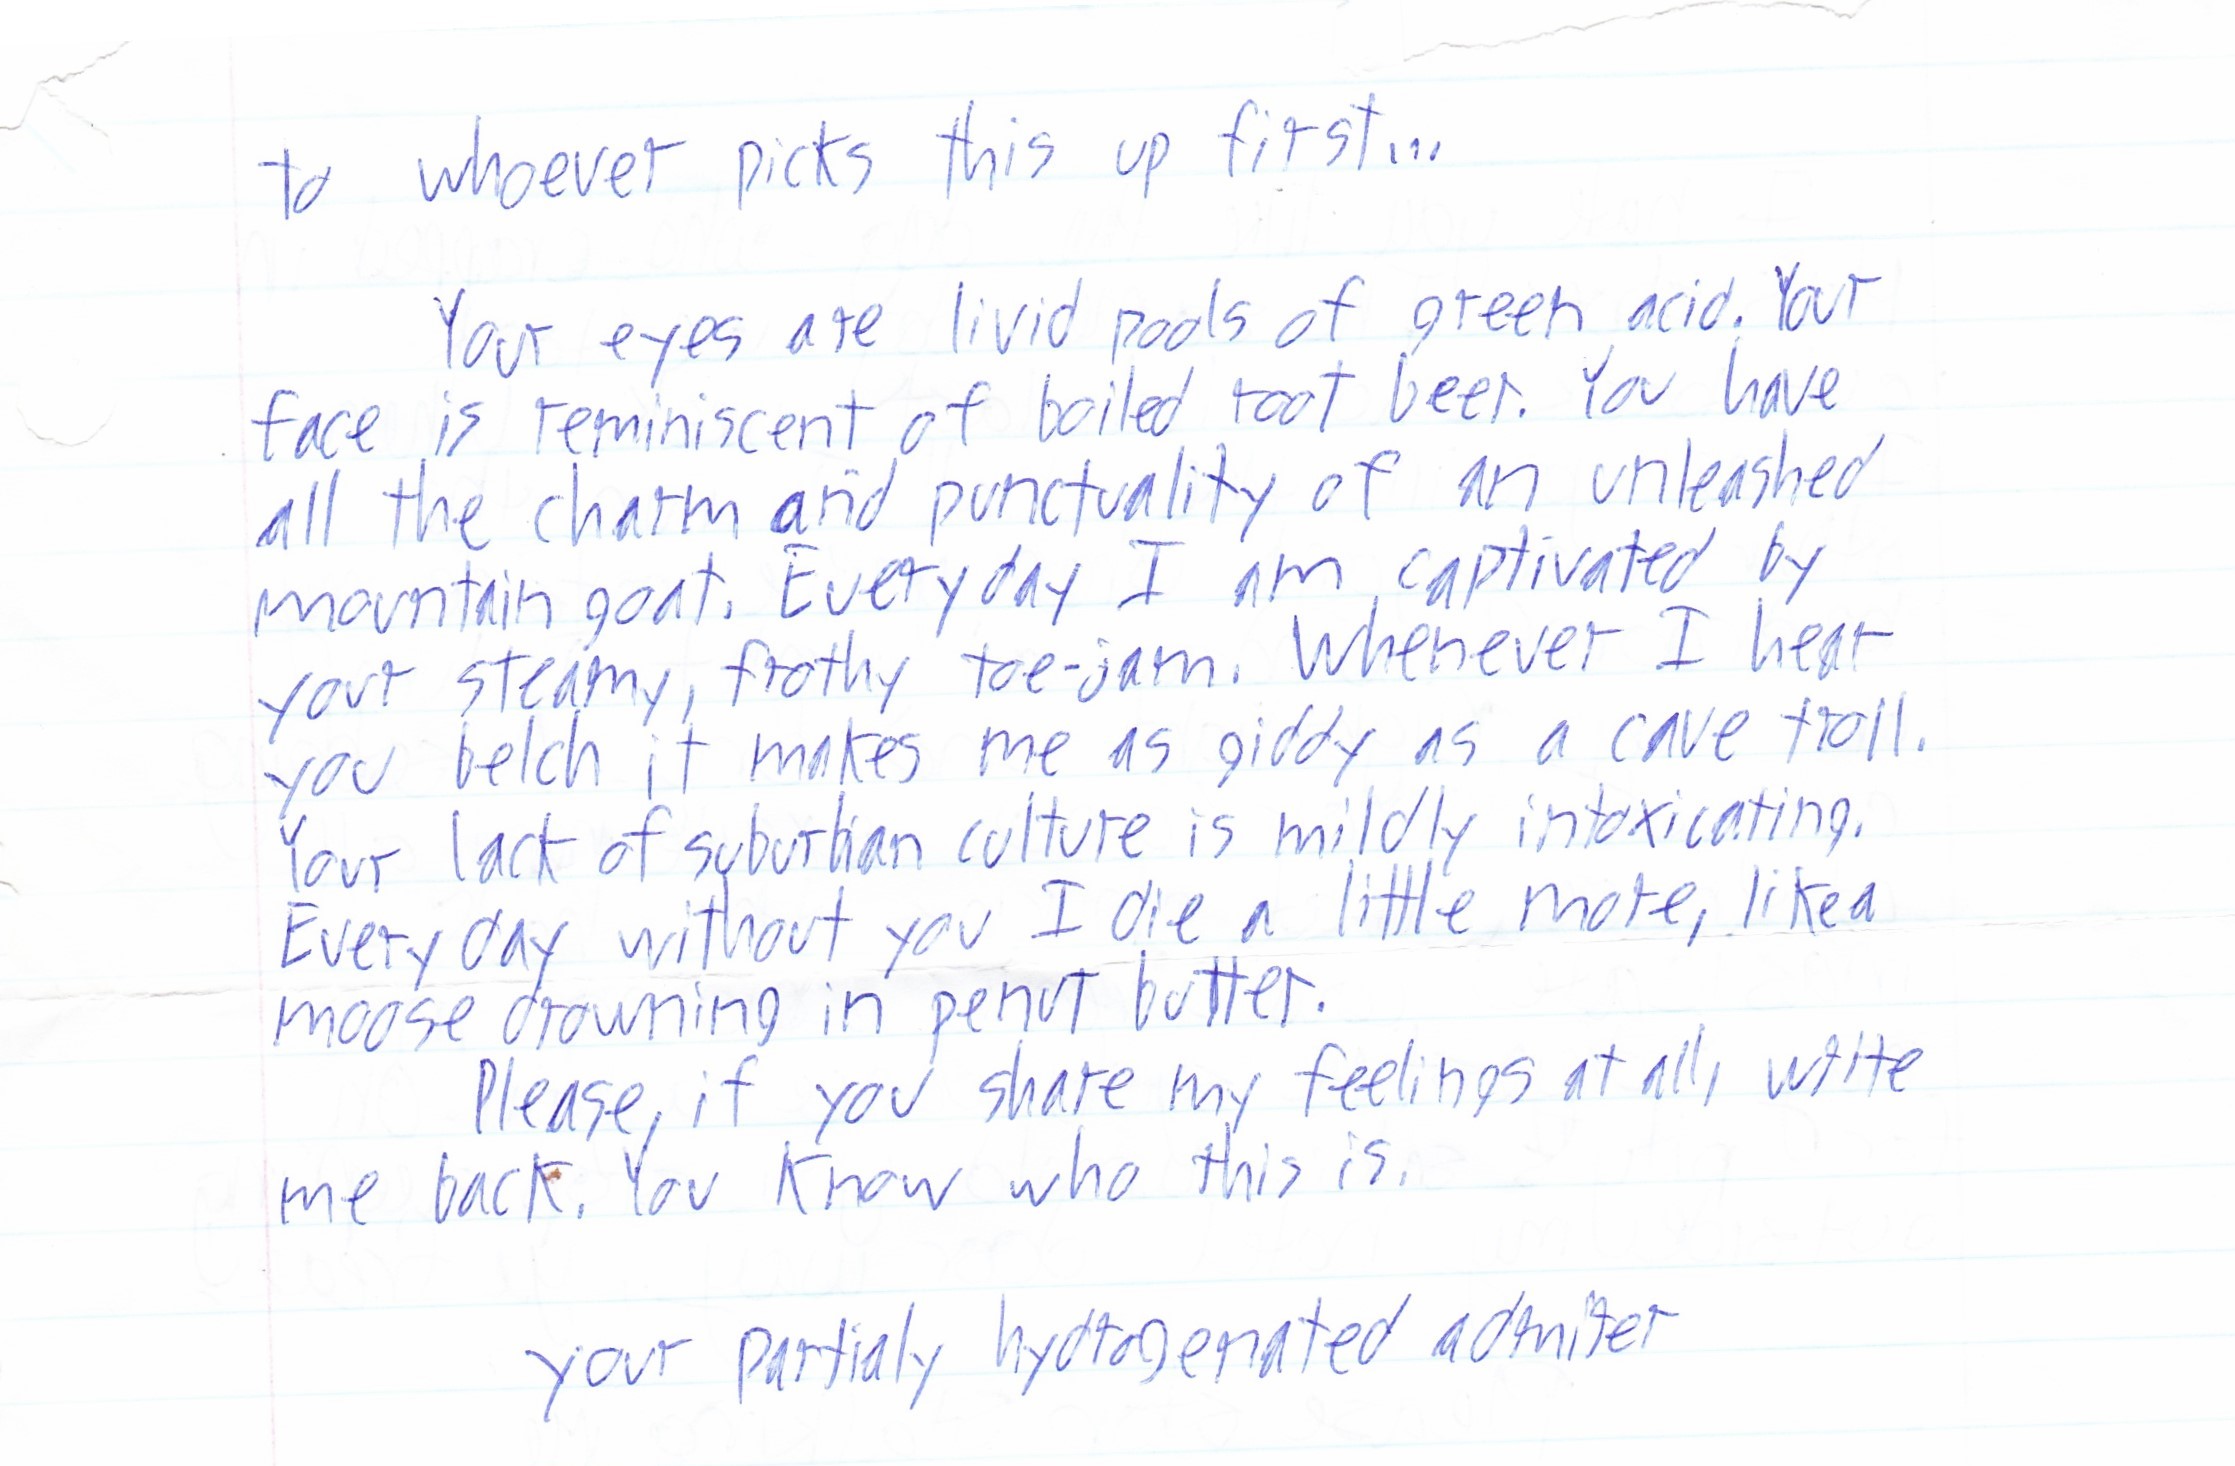 to whoever picks this up first...
Your eyes are livid pools of green acid. Your
face is reminiscent of boiled root beer. You have
all the charm and punctuality of an unleashed
mountain goat. Everyday I am captivated by
your steamy, frothy toe-jam. Whenever I hear
you belch it makes me as giddy as a cave troll.
Your lack of suburban culture is mildly intoxicating.
Every day without you I die a little more, like a
moose drowning in penut butter.
Please, if you share my feelings at all, write
me back. You know who this is.
your partialy hydrogenated admirer